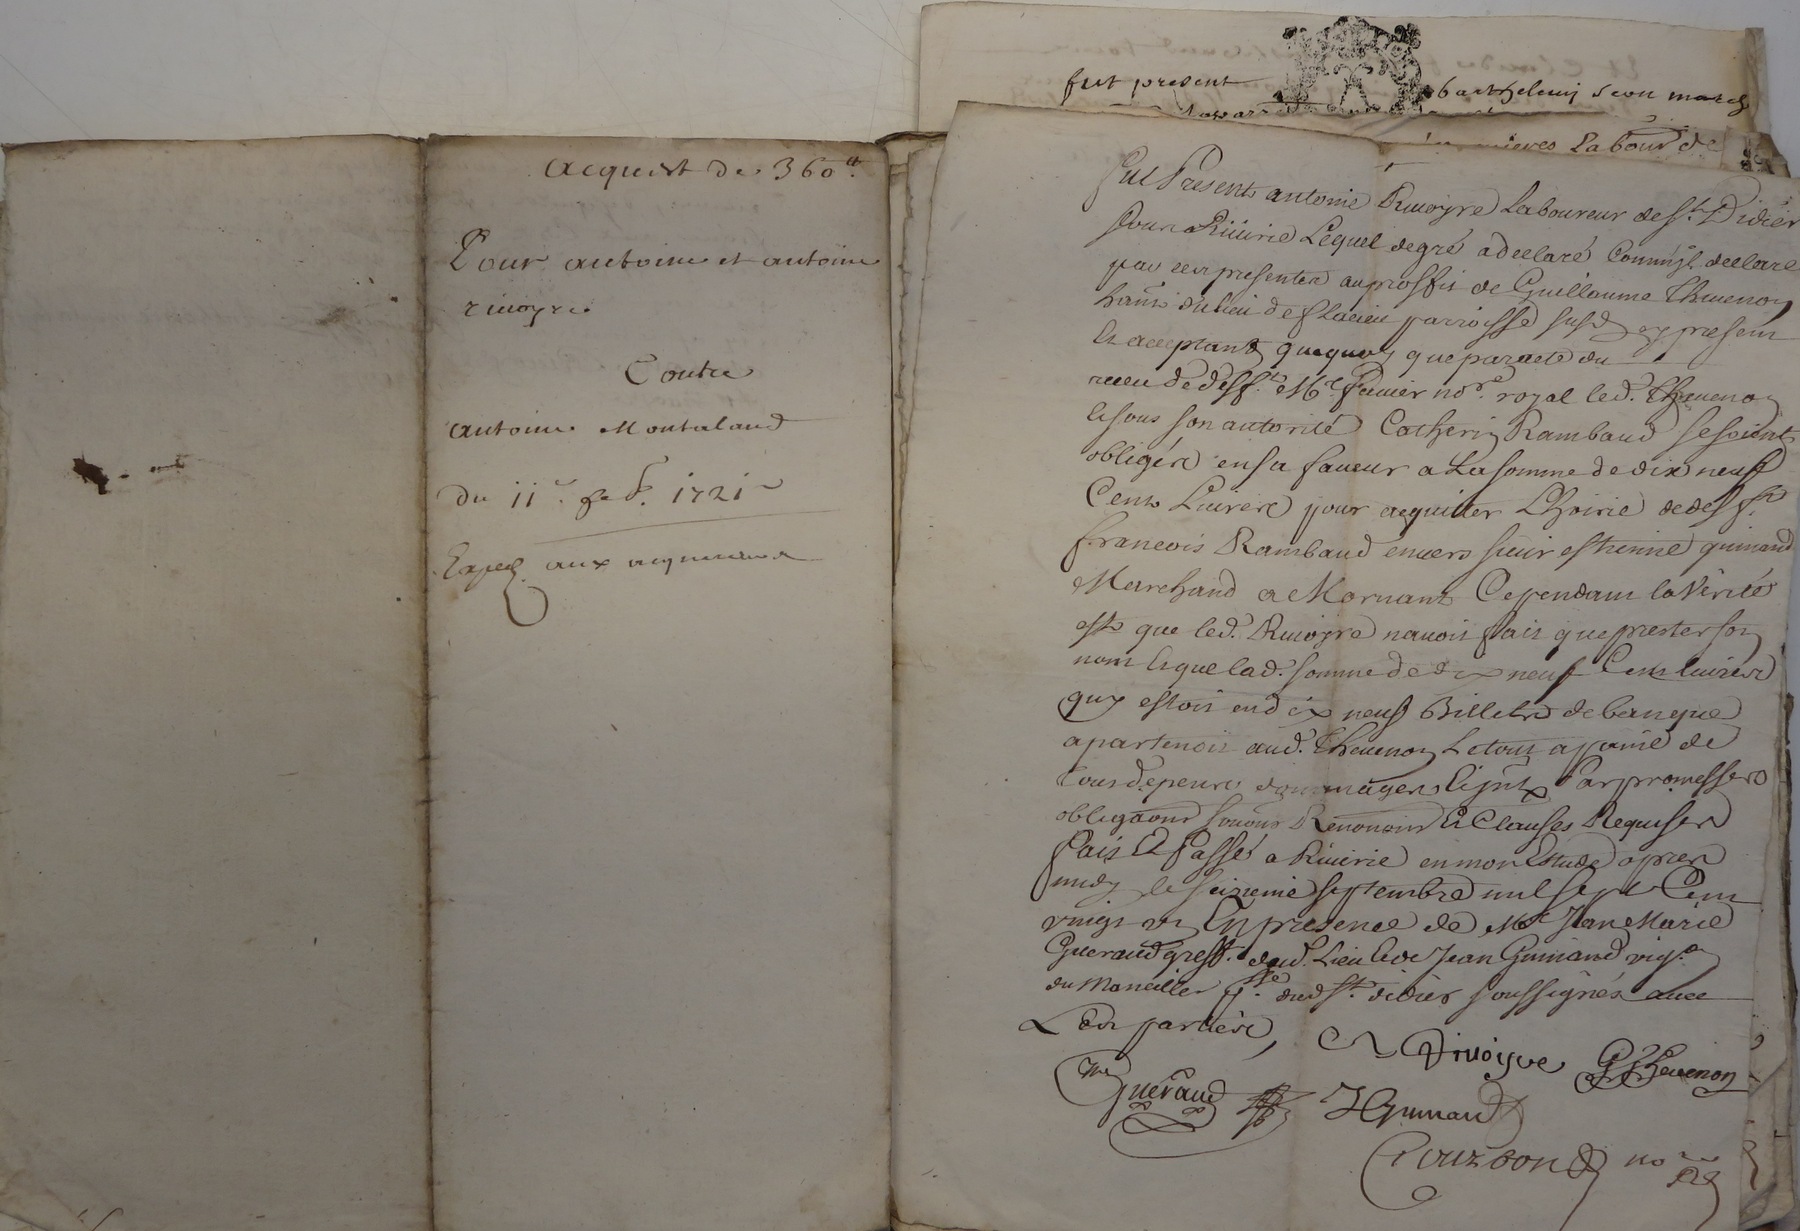 acquist de 360ᵗᵗ
Pour antoine et antoine
rivoyre
Contre
antoine Montaland
du 11ᵉ 1721
Exped. aux acquereurs
fut present barthelemy marchd
Labour de
Fut Present antoine Rivoyre Laboureur de St. Didier
sous Riverie Lequel de gré a declaré Comm'il declare
par ces presentes au proffit de Guillaume Thevenon
habitt du lieu de parroisse susd. cy present
et acceptant que quoy que par acte du
receu de deff.t Me notre royal led. Thevenon
et sous son autorité Catherin Rambaud se soient
obligés en sa faveur a La somme de dix neuf
Cents Livres pour acquitter L'hoirie de deff.t
francois Rambaud envers sieur estienne guinand
Marchand a Mornant Cependant la Vérité
est que led. Rivoyre navoit fait que prester son
nom et que lad. somme de dix neuf Cens livres
quy estoit en dix neuf Billets de banque
apartenoit aud. Thevenon Le tout a paine de
tous depens dommages et Par promesses
obligaons soumons Renonons Et Clauses Requises
fait Et Passé a Riverie en mon Estude apres
midy le seizieme septembre mil sept Cent
vingt un En presence de Me Jean Marie
Gueraud greff. dud. Lieu et de Jean Guinand vigon
du p.sse dud St. didier soussignés avec
Les parties,
A Rivoyre G Thevenon
Gueraud J Guinand
nore